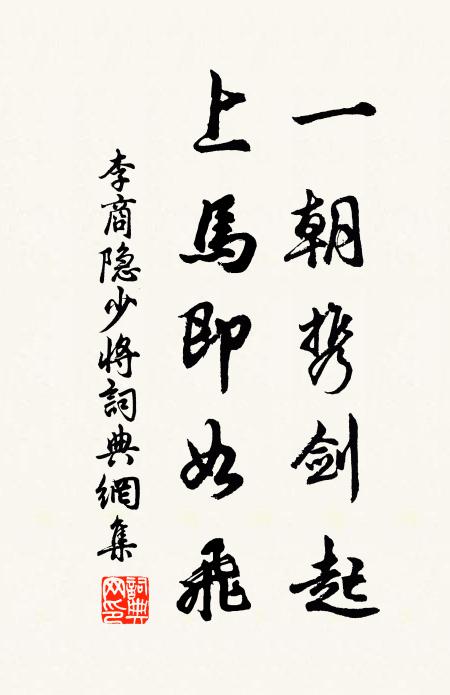 一朝携剑起
上馬即如飛
李商隐少将詞典網集
詞典網印